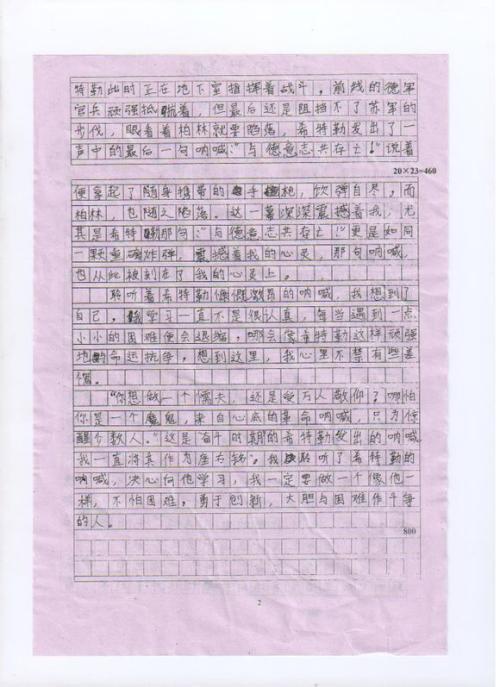 特勒此时正在地下室指挥着战斗。前线的德军
官兵顽强抵抗着，但最后还是阻挡不了苏军的
步伐，眼看着柏林就要陷落，希特勒发出了一
声中的最后一句呐喊:“与德意志共存亡!”说着
20×23=460
便拿起了随身携带的手枪，饮弹自尽，而
柏林，也随之陷落。这一幕深深震撼着我，尤
其是希特勒那句:“与德意志共存亡!”更是如同
一颗重磅炸弹，震撼着我的心灵，那句呐喊，
也从此被刻在了我的心灵上。
聆听着希特勒慷慨激昂的呐喊，我想到了
自己。我学习一直不是很认真，每当遇到一点
小小的困难便会退缩，哪会像希特勒这样顽强
地与命运抗争。想到这里，我心里不禁有些羞
愧。
“你想做一个懦夫，还是受万人敬仰？哪怕
你是一个魔鬼，来自心底的革命呐喊，只为惊
醒个数人。”这是奋斗时期的希特勒发出的呐喊
我一直将其作为座右铭。我聆听了希特勒的
呐喊，决心向他学习，我一定要做一个像他一
样，不怕困难，勇于创新，大胆与困难作斗争
的人。
800
2